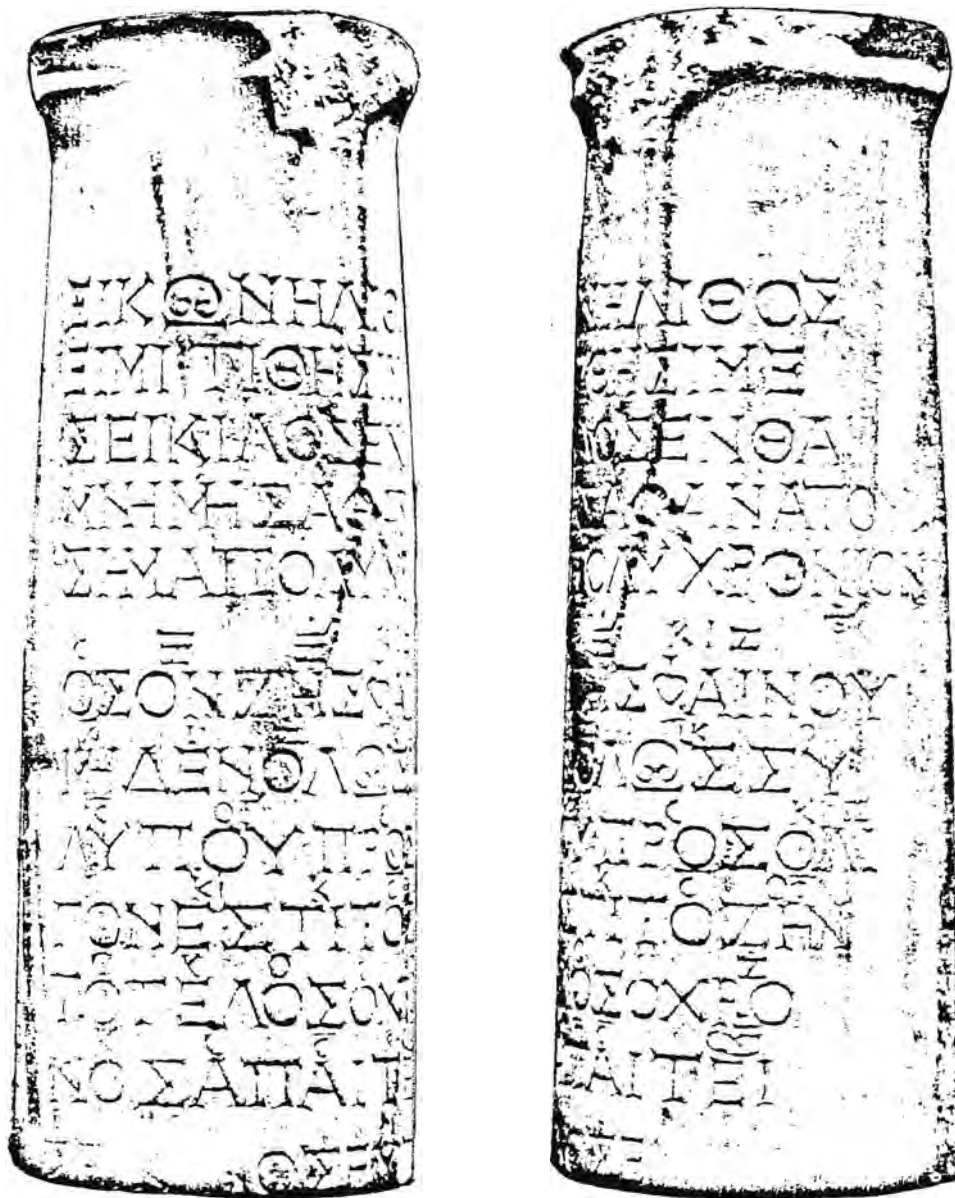 ΕΙΚΩΝΗΛΙ
ΕΙΜΙΤΙΘΗΣΙ
ΣΕΙΚΙΛΟΣΕΝ
ΜΝΗΜΗΣΑΘ
ΣΗΜΑΠΟΛΥ
ΟΣΟΝΖΗΣΦ
ΜΗΔΕΝΟΛΩΣ
ΛΥΠΟΥΠΡΟ
ΓΟΝΕΣΤΙΤΟ
ΤΟΤΕΛΟΣΟΧ
ΝΟΣΑΠΑΙΤ
ΗΛΙΘΟΣ
ΘΗΣΙΜΕ
ΟΣΕΝΘΑ
ΑΘΑΝΑΤΟΥ
ΟΛΥΧΡΟΝΙΟΝ
ΗΣΦΑΙΝΟΥ
ΟΛΩΣΣΥ
ΥΠΡΟΣΟΛΙ
ΤΙΤΟΖΗΝ
ΟΣΟΧΡΟ
ΑΙΤΕΙ